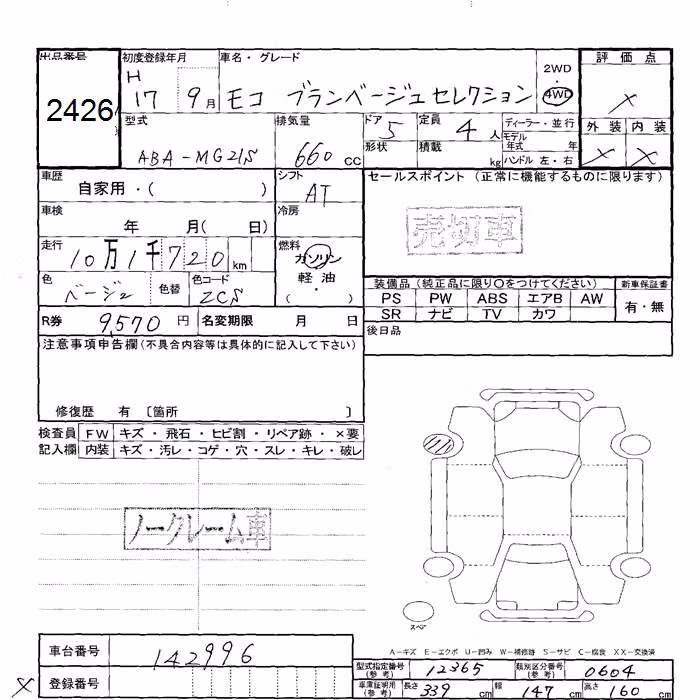 出品番号
2426
初度登録年月
H
17 9月
車名・グレード
モコ ブランベージュセレクション
2WD
4WD
評価点
×
外装 内装
× ×
型式
ABA-MG21S
排気量
660 cc
ドア 5
形状
定員 4 人
積載 kg
ディーラー・並行
モデル
年式 年
ハンドル 左・右
車歴
自家用・( )
シフト
AT
セールスポイント (正常に機能するものに限ります)
売切車
車検
年 月( 日)
冷房
走行
10万1千720km
燃料
ガソリン
軽・油
( )
色
ベージュ
色替
色コード
ZCS
装備品(純正品に限り〇をつけてください)
新車保証書
PS PW ABS エアB AW
有・無
SR ナビ TV カワ
R券 9,570 円
名変期限 月 日
後日品
注意事項申告欄(不具合内容等は具体的に記入して下さい)
修復歴 有 〔箇所 〕
検査員 FW キズ・飛石・ヒビ割・リペア跡・×要
記入欄 内装 キズ・汚レ・コゲ・穴・スレ・キレ・破レ
ノークレーム車
スペア
A-キズ E-エクボ U-凹み W-補修跡 S-サビ C-腐食 XX-交換済
車台番号 142996
型式指定番号
(参考)
12365
類別区分番号
(参考)
0604
× 登録番号
車庫証明用
(参考)
長さ 339 cm
幅 147 cm
高さ 160 cm